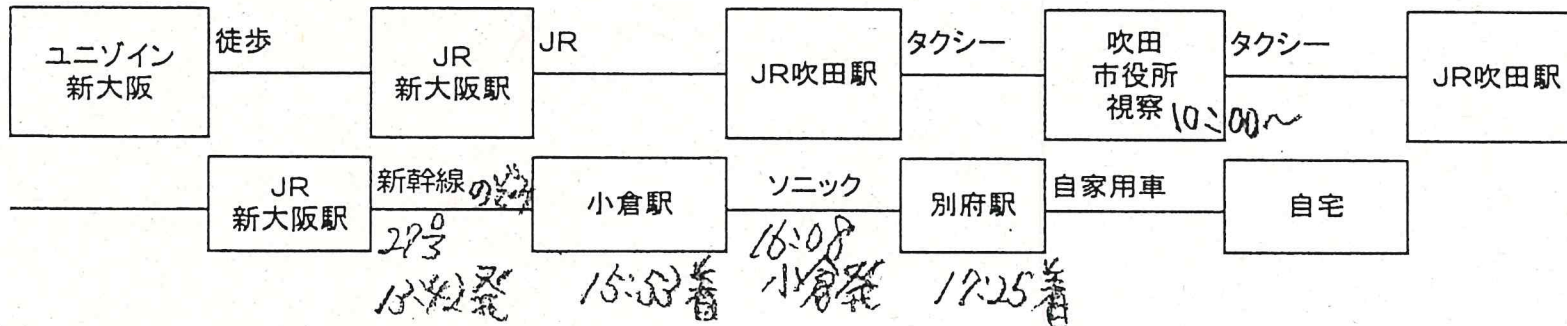 ユニゾイン
新大阪
徒歩
JR
新大阪駅
JR
JR吹田駅
タクシー
吹田
市役所
視察 10:00〜
タクシー
JR吹田駅
JR
新大阪駅
新幹線 の
27号
13:42発
小倉駅
15:53着
ソニック
16:08
小倉発
別府駅
17:25着
自家用車
自宅